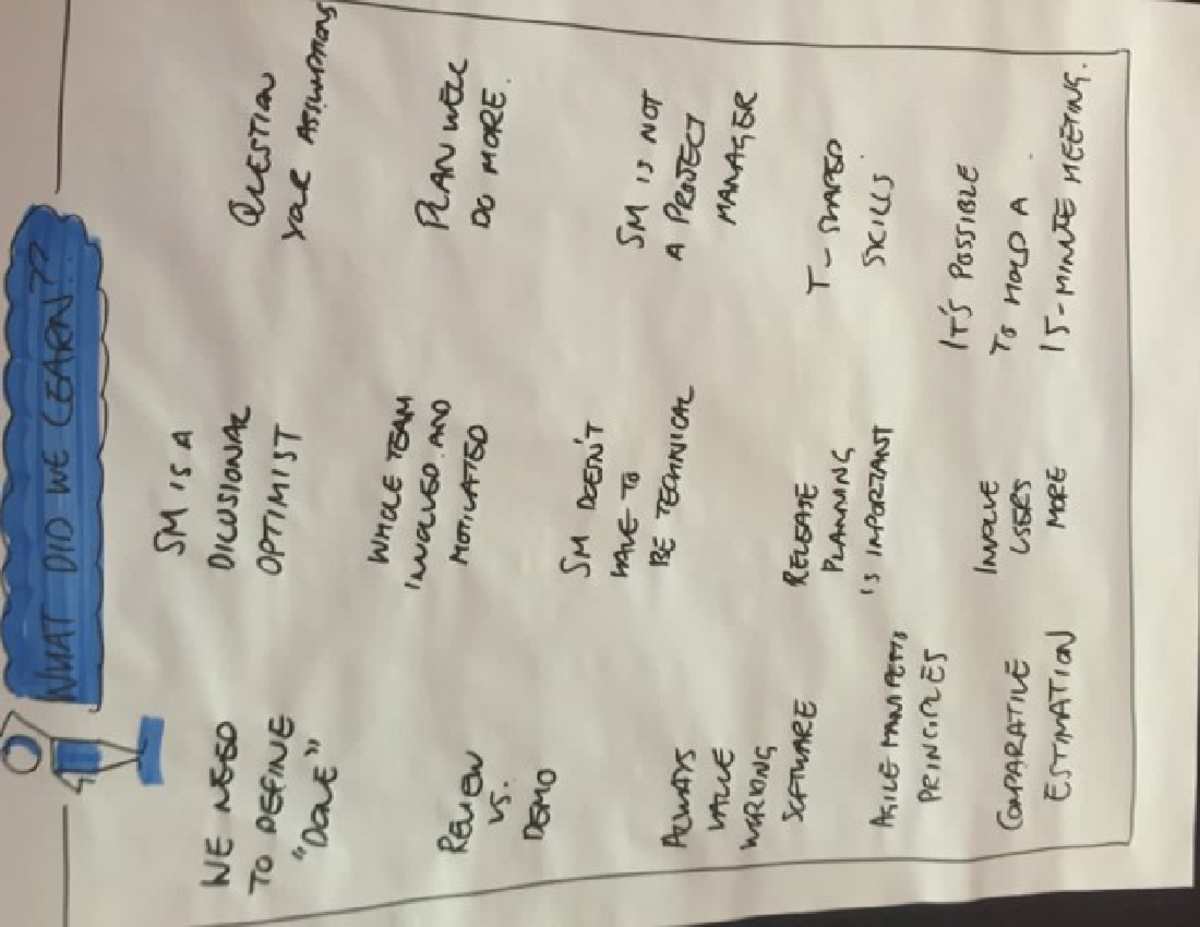 WHAT DID WE LEARN??
WE NEED
TO DEFINE
"DONE"
SM IS A
DILUSIONAL
OPTIMIST
QUESTION
YOUR ASSUMPTIONS
REVIEW
VS.
DEMO
WHOLE TEAM
INVOLVED AND
MOTIVATED
PLAN WELL
DO MORE.
ALWAYS
VALUE
WORKING
SOFTWARE
SM DOESN'T
HAVE TO
BE TECHNICAL
SM IS NOT
A PROJECT
MANAGER
AGILE MANIFESTO
PRINCIPLES
RELEASE
PLANNING
IS IMPORTANT
T-SHAPED
SKILLS
COMPARATIVE
ESTIMATION
INVOLVE
USERS
MORE
IT'S POSSIBLE
TO HOLD A
15-MINUTE MEETING.